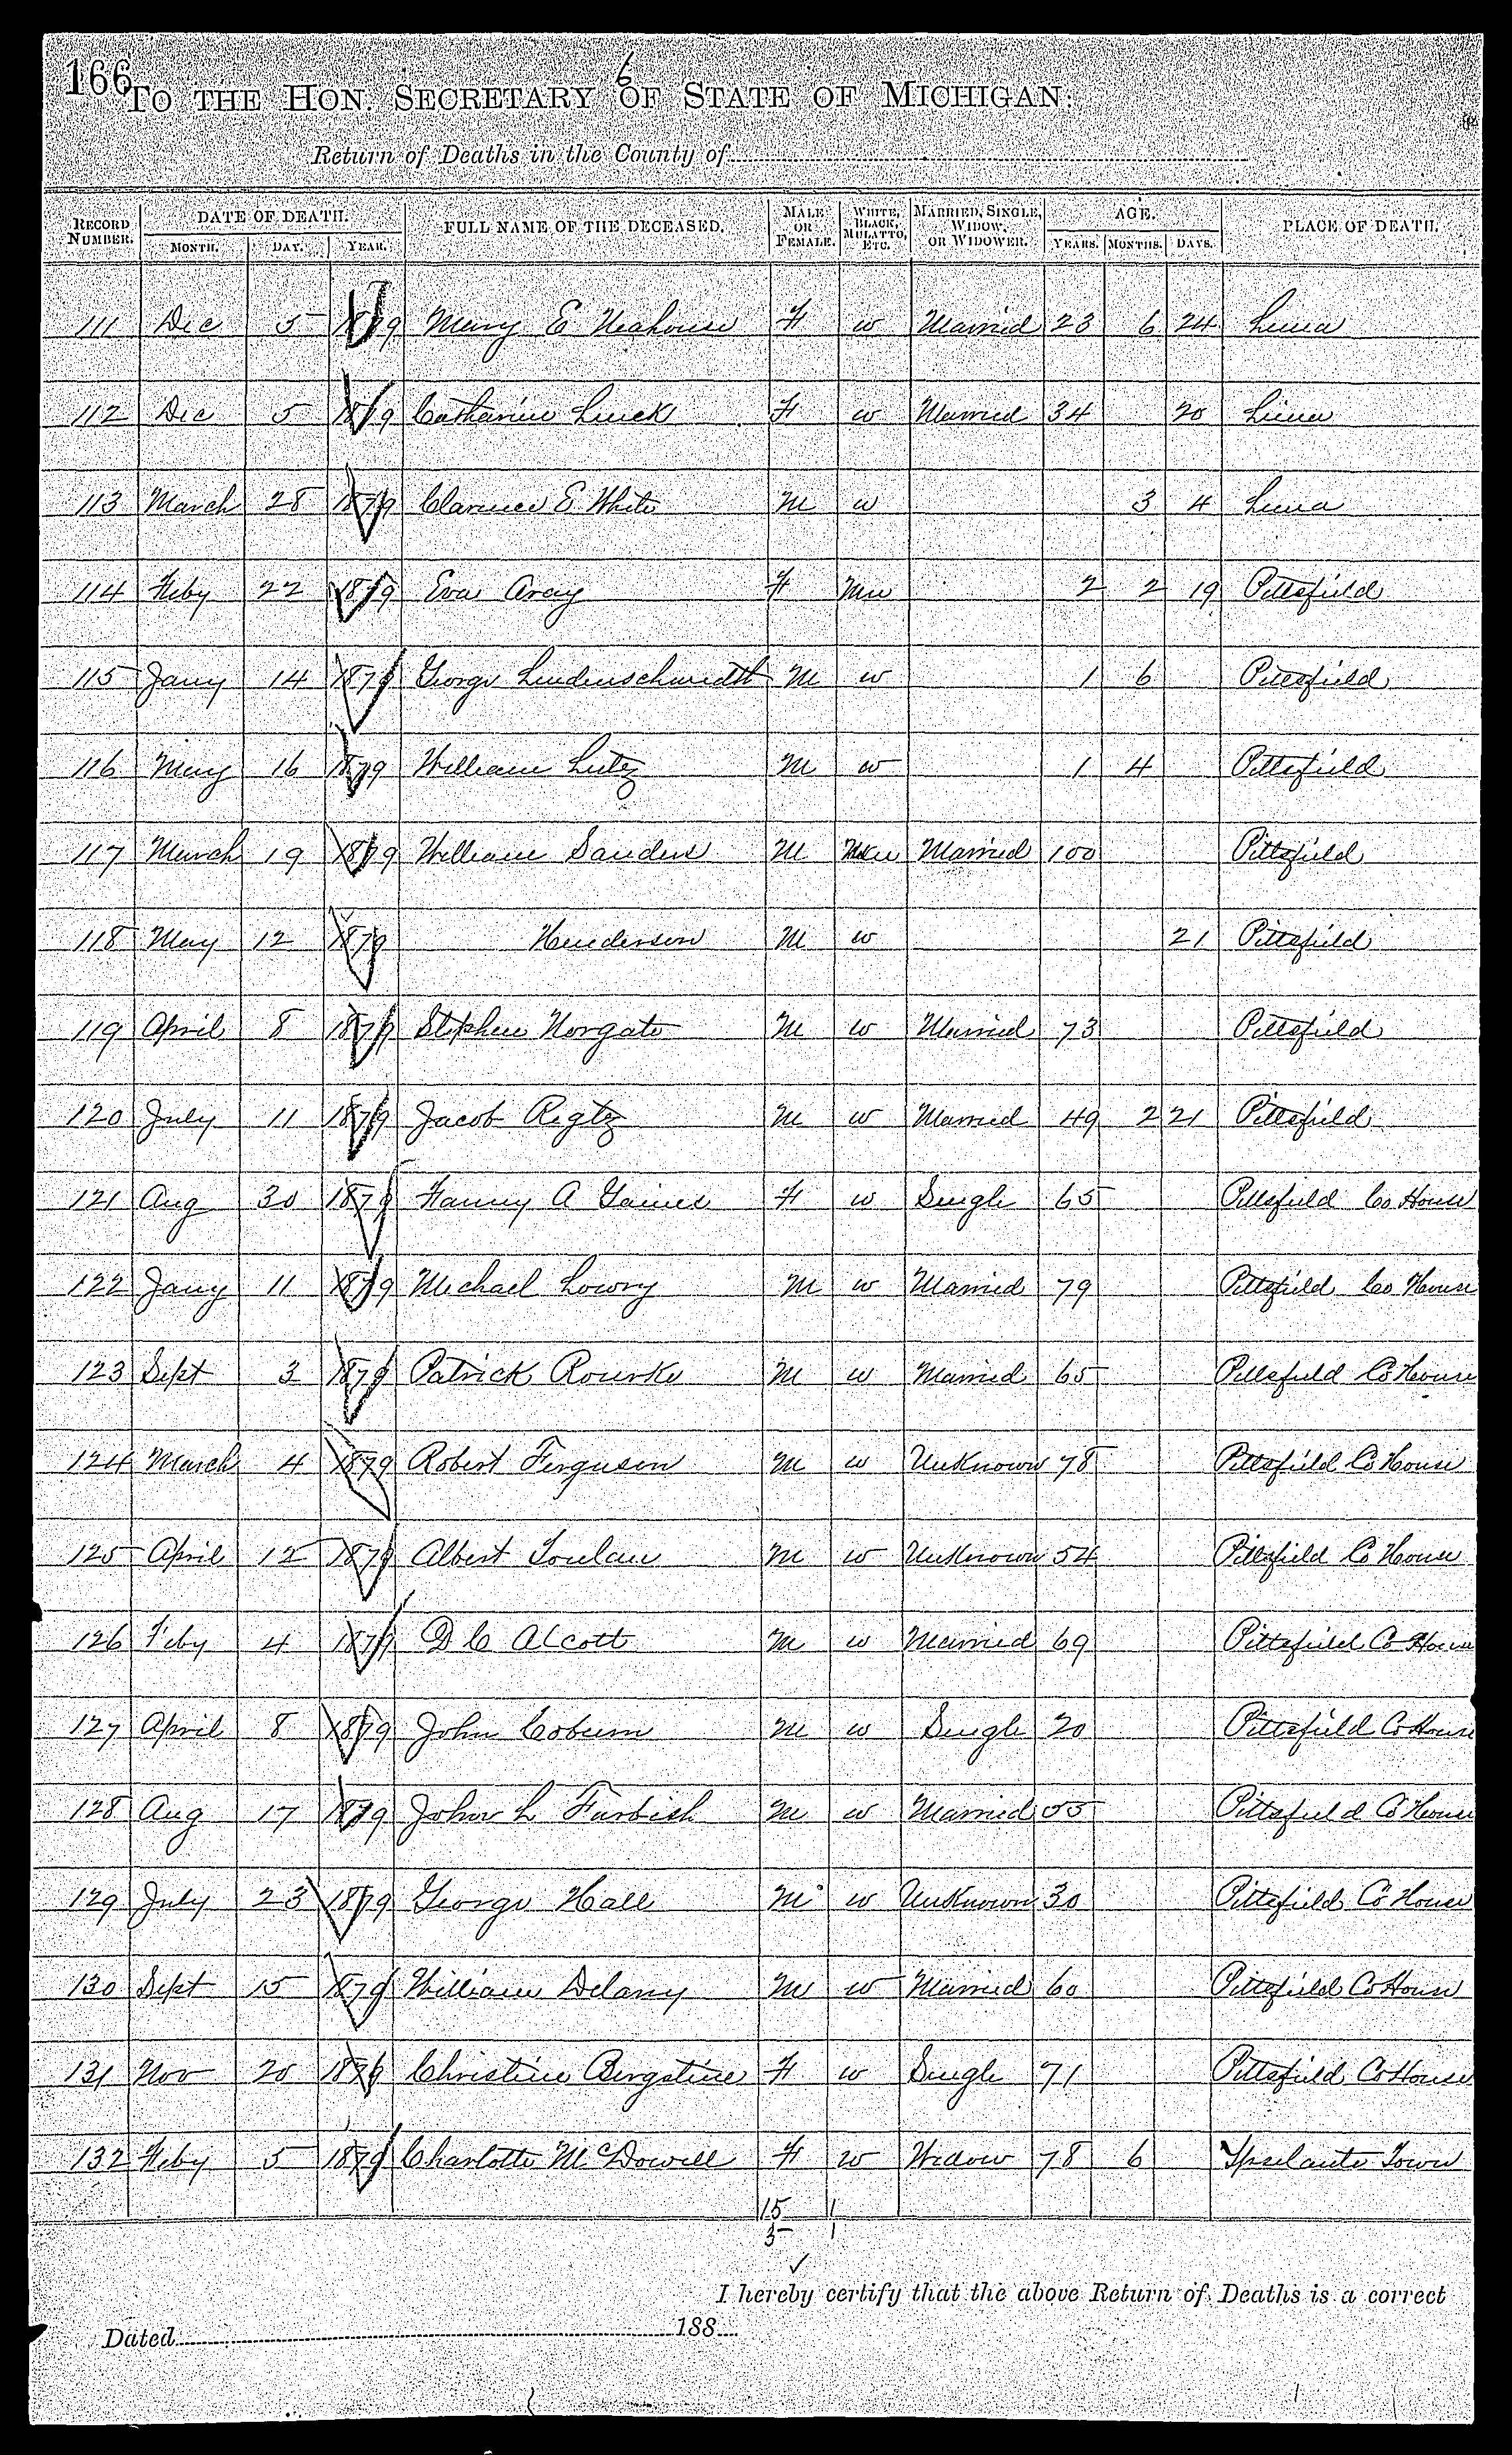 166
6
TO THE HON. SECRETARY OF STATE OF MICHIGAN:
Return of Deaths in the County of
RECORD NUMBER. DATE OF DEATH. MONTH. DAY. YEAR. FULL NAME OF THE DECEASED. MALE OR FEMALE. WHITE, BLACK, MULATTO, ETC. MARRIED, SINGLE, WIDOW, OR WIDOWER. AGE. YEARS. MONTHS. DAYS. PLACE OF DEATH.
111 Dec 5 1879 Mary E Neahouse F w Married 23 6 24 Lima
112 Dec 5 1879 Catharine Luick F w Married 34 20 Lima
113 March 28 1879 Clarence E White M w 3 4 Lima
114 Feby 22 1879 Eva Aray F Mu 2 2 19 Pittsfield
115 Jany 14 1879 George Lindenschmidt M w 1 6 Pittsfield
116 May 16 1879 William Lutz M w 1 4 Pittsfield
117 March 19 1879 William Sanders M Married 100 Pittsfield
118 May 12 1879 Henderson M w 21 Pittsfield
119 April 8 1879 Stephen Norgate M w Married 73 Pittsfield
120 July 11 1879 Jacob Regtz M w Married 49 2 21 Pittsfield
121 Aug 30 1879 Fanny A Gaines F w Single 65 Pittsfield Co House
122 Jany 11 1879 Michael Lowry M w Married 79 Pittsfield Co House
123 Sept 3 1879 Patrick Rourke M w Married 65 Pittsfield Co House
124 March 4 1879 Robert Ferguson M w UnKnown 78 Pittsfield Co House
125 April 12 1879 Albert M w UnKnown 54 Pittsfield Co House
126 Feby 4 1879 D C Alcott M w Married 69 Pittsfield Co House
127 April 8 1879 John Coburn M w Single 20 Pittsfield Co House
128 Aug 17 1879 John L Furbish M w Married 55 Pittsfield Co House
129 July 23 1879 George Hall M w UnKnown 30 Pittsfield Co House
130 Sept 15 1879 William Delany M w Married 60 Pittsfield Co House
131 Nov 20 1879 Christine Bergstine F w Single 71 Pittsfield Co House
132 Feby 5 1879 Charlotte McDowell F w Widow 78 6 Ypsilanti Town
15 1
5 1
I hereby certify that the above Return of Deaths is a correct
Dated 188